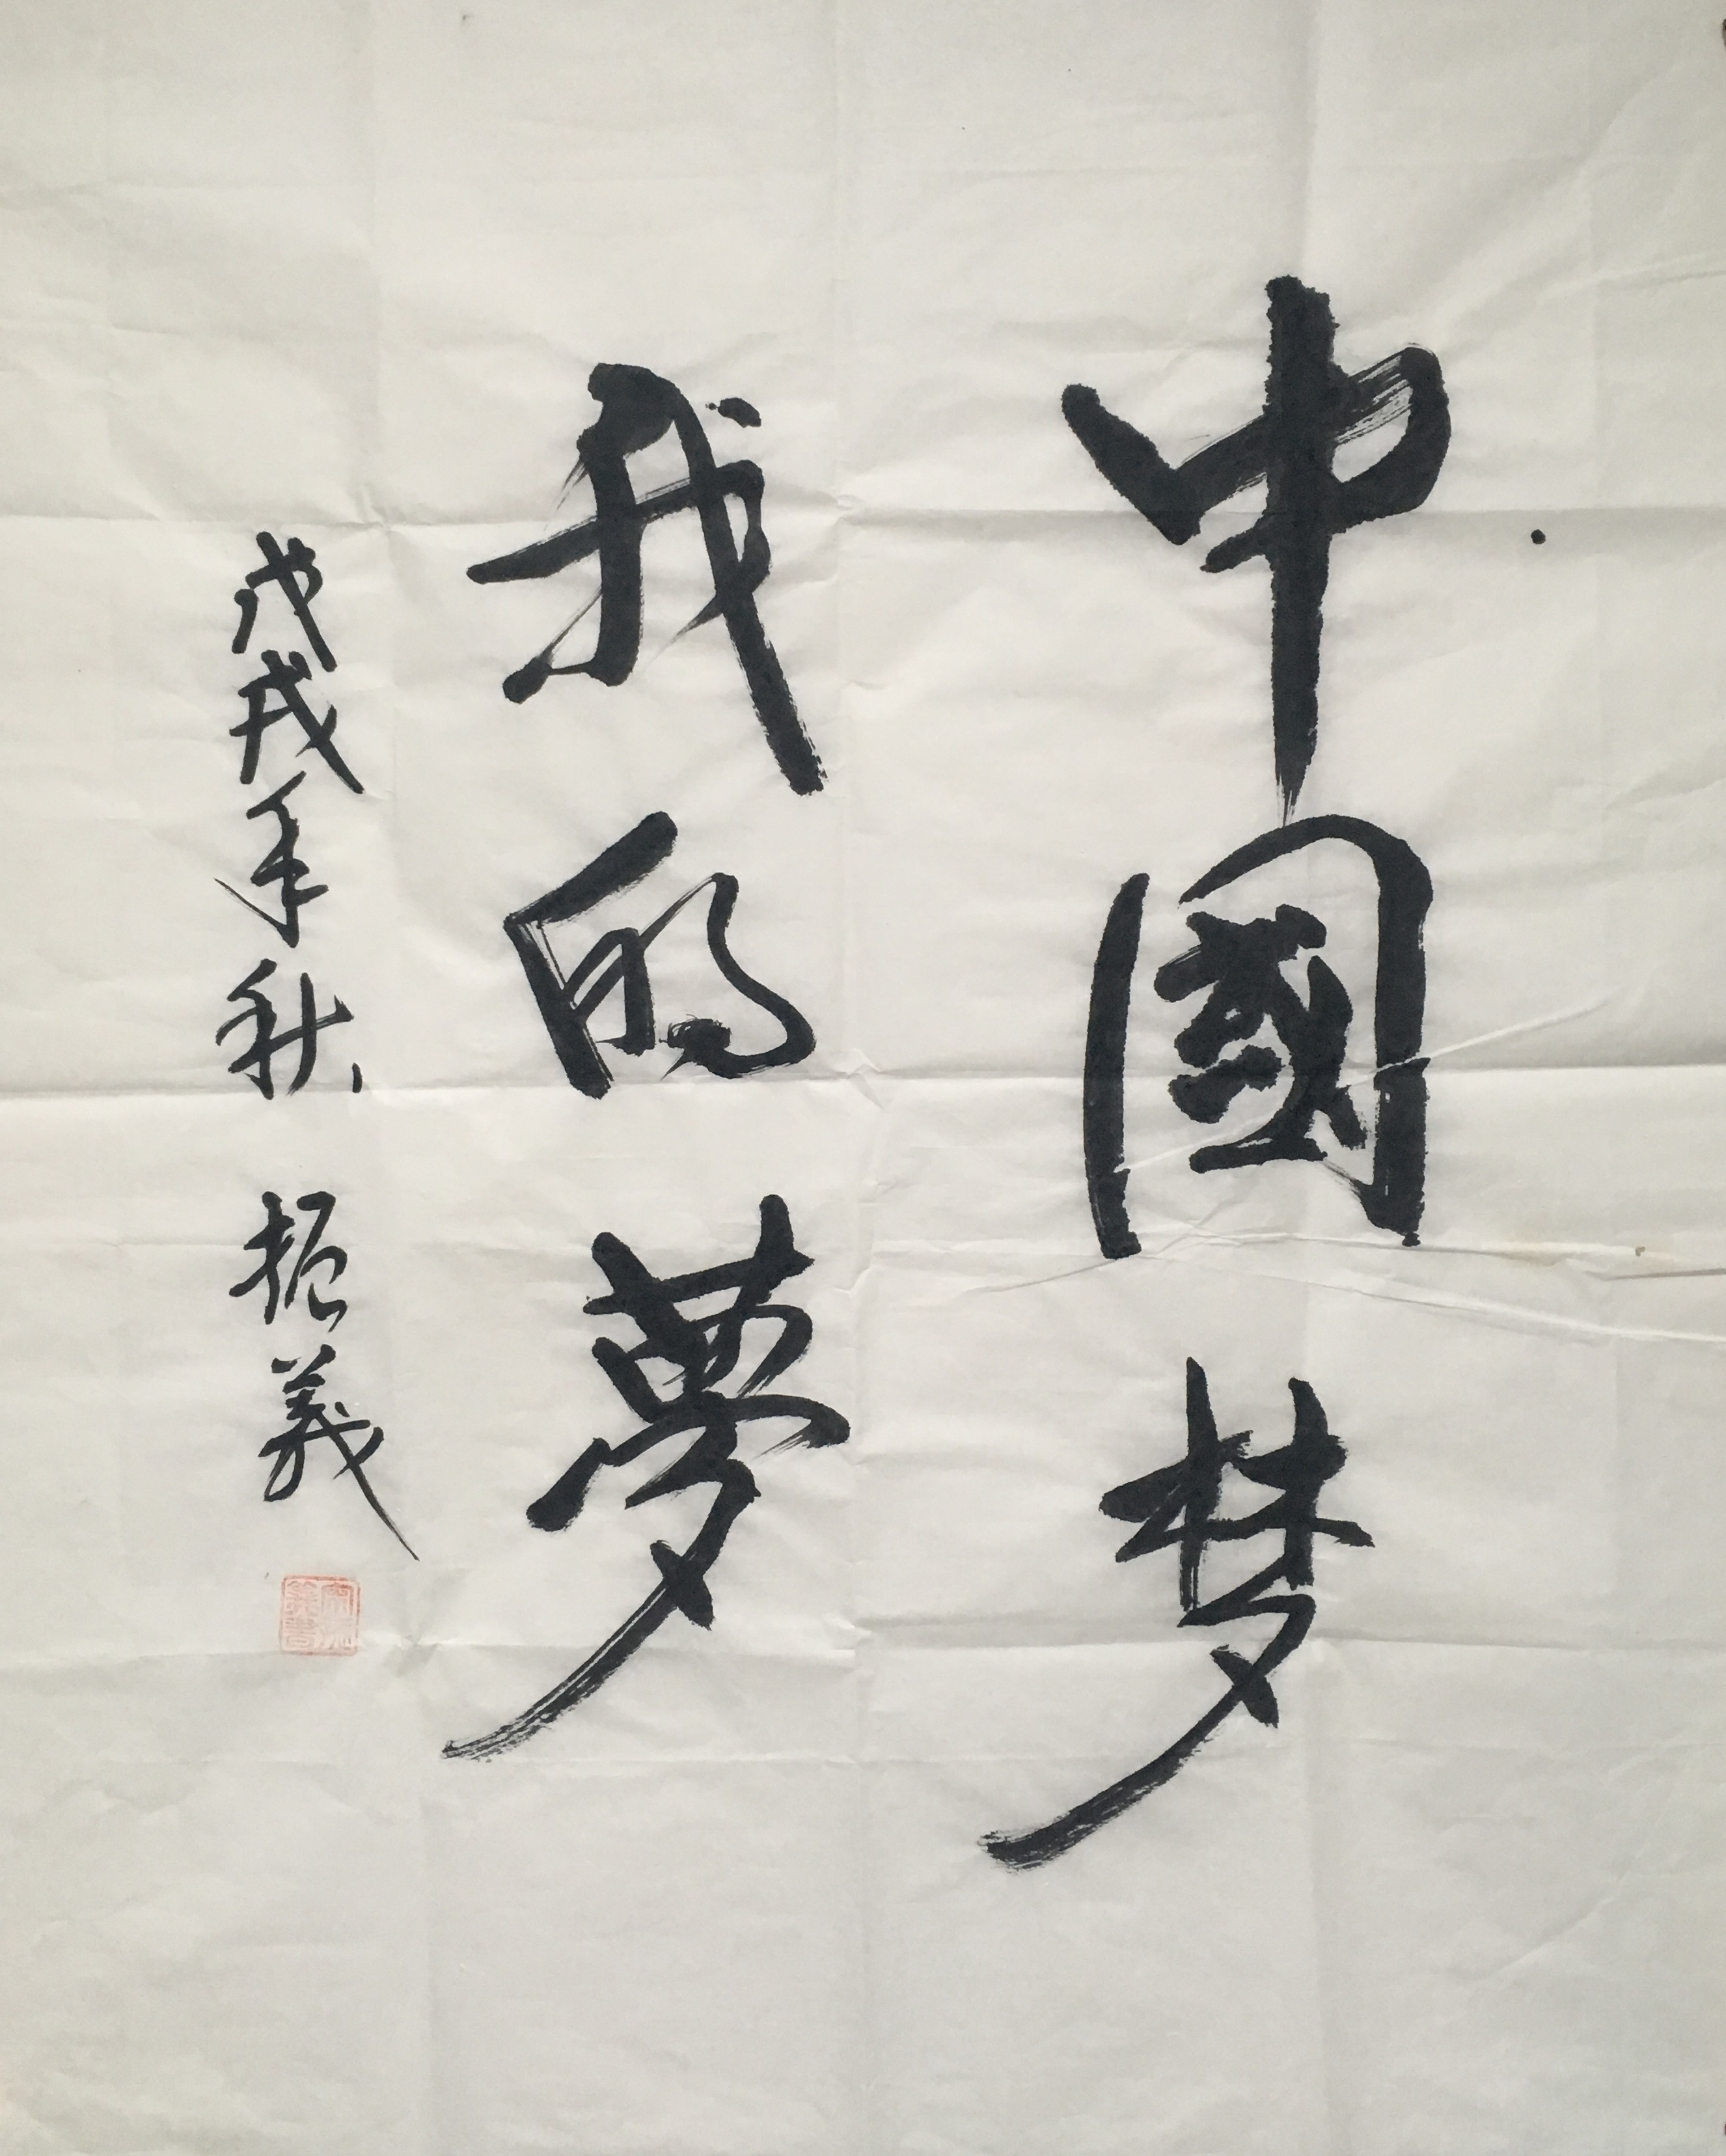 中國梦
我的夢
戊戌年秋 振義